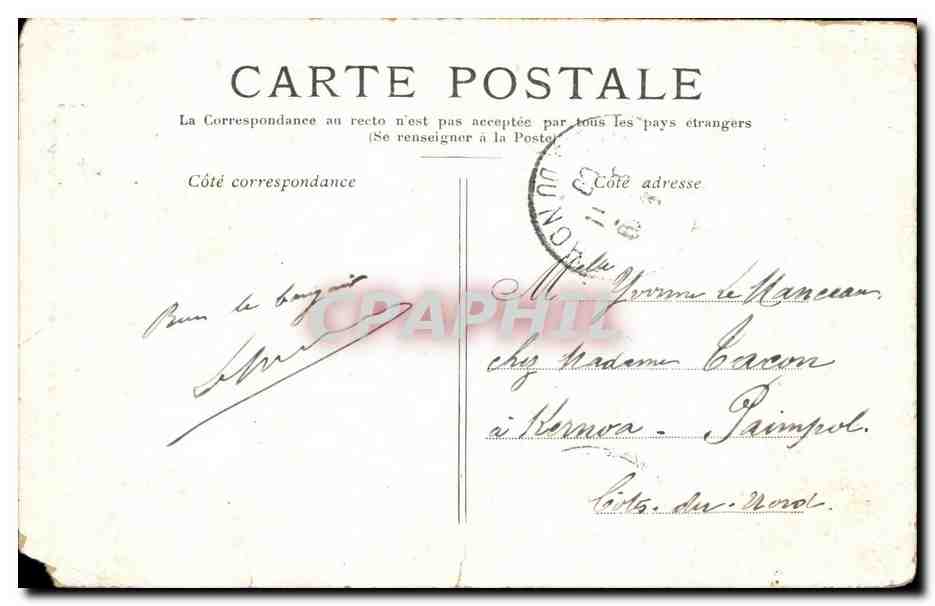 CARTE POSTALE
La Correspondance au recto n'est pas acceptée par tous les pays étrangers
(Se renseigner à la Poste)
Côté correspondance
Côté adresse
DU NO
11
Mlle Yvonne Le Manceau
chez Madame Tacon
à Kernoa - Paimpol.
Côts-du-Nord.
Bien le bonjour
CPAPHIL